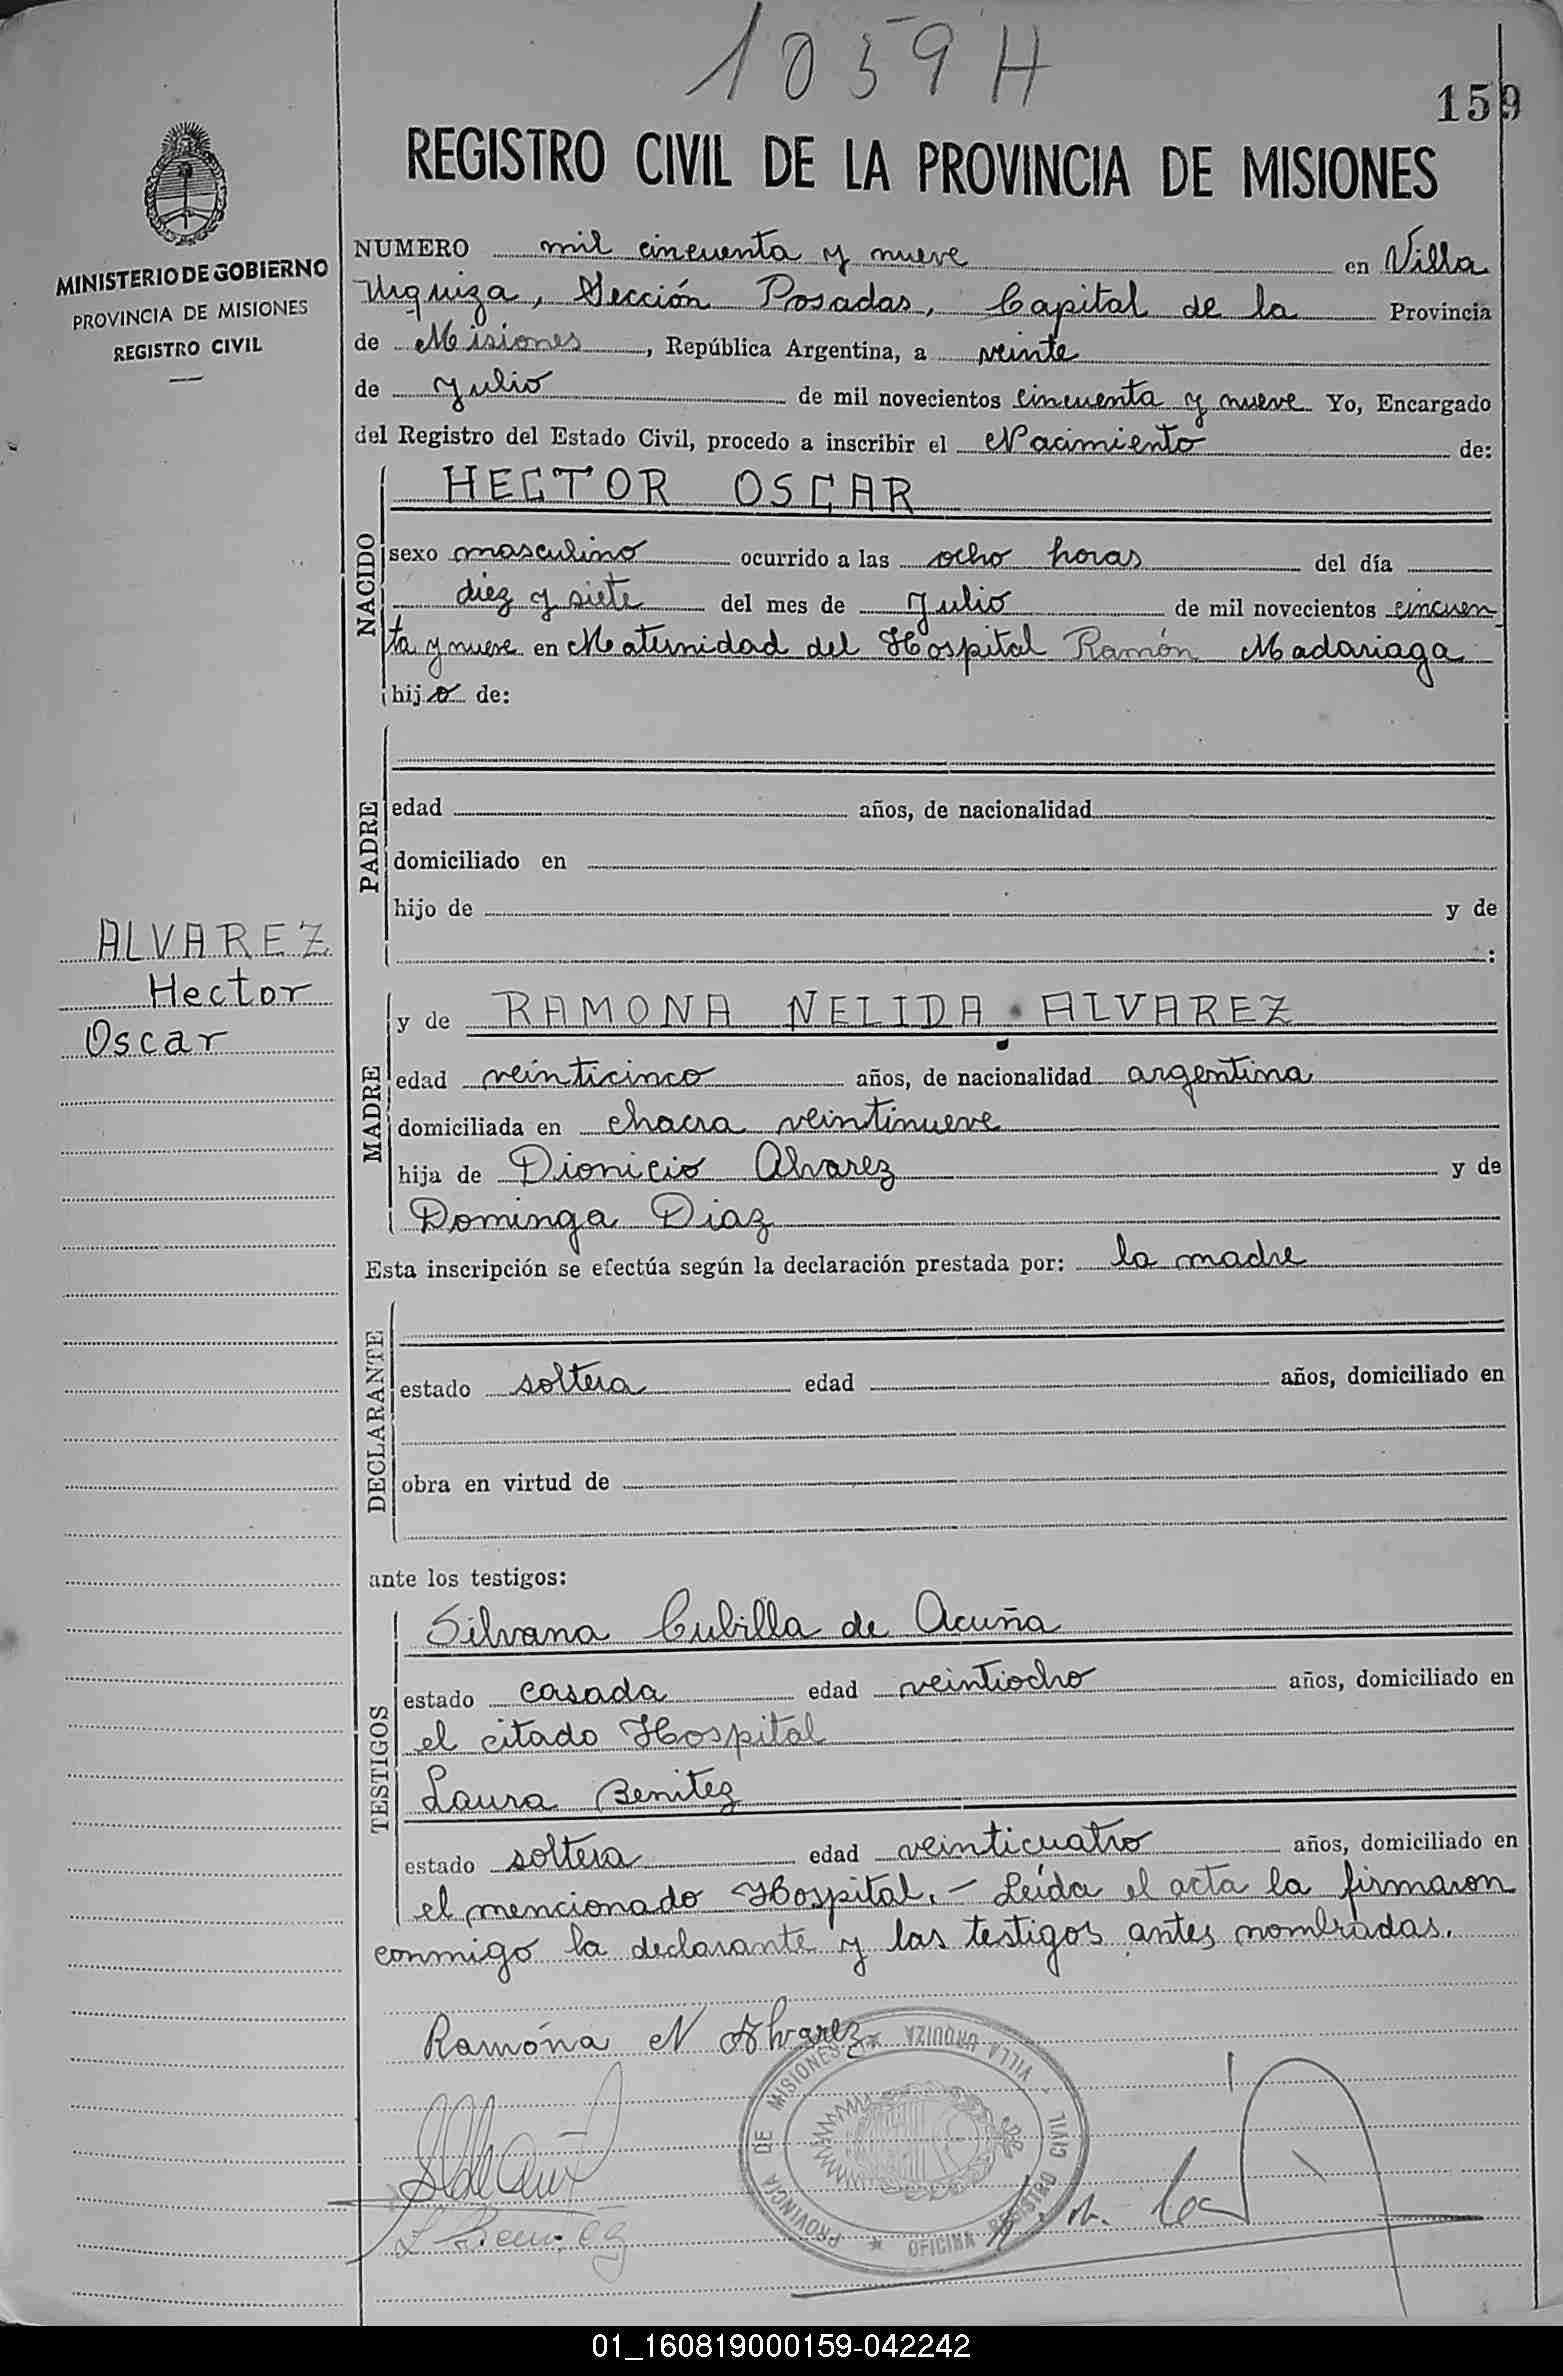 1059 H
159
REGISTRO CIVIL DE LA PROVINCIA DE MISIONES
MINISTERIO DE GOBIERNO
PROVINCIA DE MISIONES
REGISTRO CIVIL
NUMERO mil cincuenta y nueve en Villa
Urquiza, Sección Posadas, Capital de la Provincia
de Misiones, República Argentina, a veinte
de Julio de mil novecientos cincuenta y nueve Yo, Encargado
del Registro del Estado Civil, procedo a inscribir el Nacimiento de:
NACIDO
HECTOR OSCAR
sexo masculino ocurrido a las ocho horas del día
diez y siete del mes de Julio de mil novecientos cincuen
ta y nueve en Maternidad del Hospital Ramón Madariaga
hijo de:
PADRE
edad años, de nacionalidad
domiciliado en
hijo de y de
:
ALVAREZ
Hector
Oscar
MADRE
y de RAMONA NELIDA ALVAREZ
edad veinticinco años, de nacionalidad argentina
domiciliada en chacra veintinueve
hija de Dionicio Alvarez y de
Dominga Diaz
Esta inscripción se efectúa según la declaración prestada por: la madre
DECLARANTE
estado soltera edad años, domiciliado en
obra en virtud de
ante los testigos:
TESTIGOS
Silvana Cubilla de Acuña
estado casada edad veintiocho años, domiciliado en
el citado Hospital
Laura Benitez
estado soltera edad veinticuatro años, domiciliado en
el mencionado Hospital. - Leída el acta la firmaron
conmigo la declarante y las testigos antes nombradas.
Ramóna N Alvarez
PROVINCIA DE MISIONES * VILLA URQUIZA
* OFICINA REGISTRO CIVIL
L Benitez
01_160819000159-042242